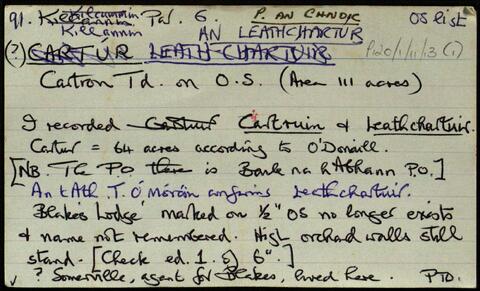 91. Killannin Par. 6. P. AN CHNOIC OS list
Kilcummin
Killannin AN LEATHCHARTUR
(?) CARTÚR LEATH-CHARTUIR P120/1/11/13 (1)
Cartron Td. on O.S. (Area 111 acres)
I recorded Cartúir Cartruin & Leathchartuir.
Cartur = 64 acres according to O'Donaill.
[NB. The P.O. there is Bonle na hAbhann P.O.]
An tAth. T. Ó Moráin confirms Leathchartuir.
'Blake's Lodge' marked on ½" OS no longer exists
& name not remembered. High orchard walls still
stand. [Check ed. 1. of 6".]
✓ ? Somerville, agent for Blakes, lived here. PTO.